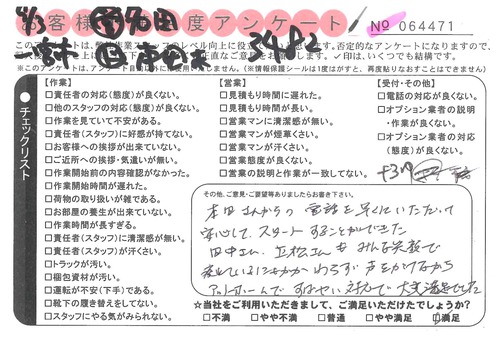 お客様満足度アンケート
No 064471
このアンケートは
✓印は、いくつでも結構です。
※このアンケートは、アンケート目的以外に
(※情報保護シールは1度はがすと、再度貼りなおすことはできません)
チェックリスト
【作業】
□責任者の対応(態度)が良くない。
□他のスタッフの対応(態度)が良くない。
□作業を見ていて不安がある。
□責任者(スタッフ)に好感が持てない。
□お客様への挨拶が出来ていない。
□ご近所への挨拶・気遣いが無い。
□作業開始前の内容確認がなかった。
□作業開始時間が遅れた。
□荷物の取り扱いが雑である。
□お部屋の養生が出来ていない。
□作業時間が長すぎる。
□責任者(スタッフ)に清潔感が無い。
□責任者(スタッフ)が汗くさい。
□トラックが汚い。
□梱包資材が汚い。
□運転が不安(下手)である。
□靴下の履き替えをしてない。
□スタッフにやる気がみられない。
【営業】
□見積もり時間に遅れた。
□見積もり時間が長い。
□営業マンに清潔感が無い。
□営業マンが煙草くさい。
□営業マンが汗くさい。
□営業態度が良くない。
□営業の説明と作業が一致してない。
【受付・その他】
□電話の対応が良くない。
□オプション業者の説明
・作業が良くない。
□オプション業者の対応
(態度)が良くない。
その他、ご意見・ご要望等ありましたらお書き下さい。
本田さんからの電話を早くにいただいて
安心して、スタートすることができました
田中さん、立松さんもみんな笑顔で
声をかけながら
アットホームで すばやい対応で 大変満足でした
☆当社をご利用いただきまして、ご満足いただけたでしょうか?
□不満 □やや不満 □普通 □やや満足 ☑満足